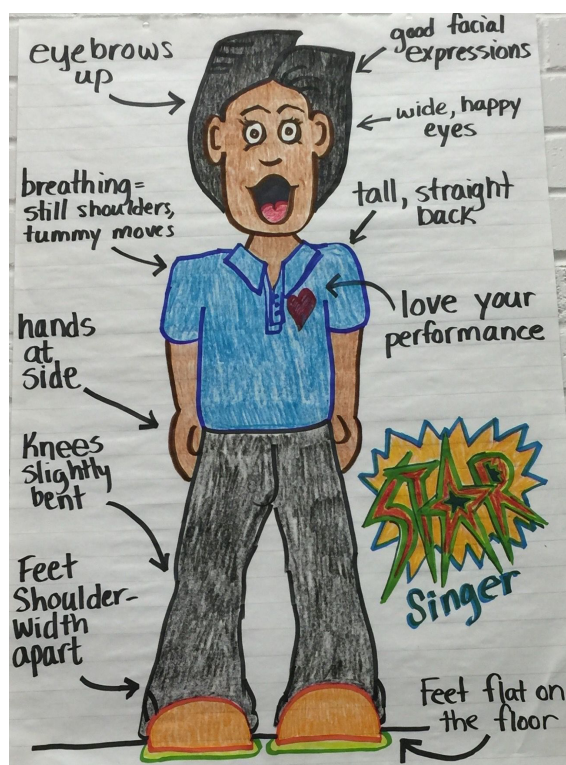 eyebrows
up
good facial
expressions
wide, happy
eyes
breathing=
still shoulders,
tummy moves
tall, straight
back
love your
performance
hands
at
side
Knees
slightly
bent
STAR
Singer
Feet
Shoulder-
width
apart
Feet flat on
the floor